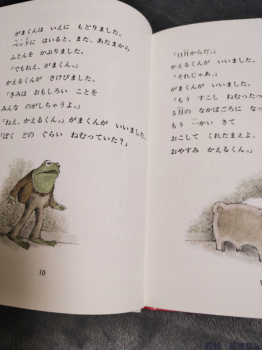 がまくんは いえに もどりました。
ベッドに はいると、また、あたまから
ふとんを かぶりました。
「でもねえ、がまくん。」
かえるくんが さけびました。
「きみは おもしろい ことを
みんな のがしちゃうよ。」
「ねえ、かえるくん。」がまくんが いいました。
「ぼく どの ぐらい ねむっていた?」
10
「11月からだ。」
かえるくんが いいました。
「それじゃあ、」
がまくんが いいました。
「もう すこし ねむったって
5月の なかばごろに なっ
もう 一かい きて
おこして くれたまえよ。
おやすみ かえるくん。」